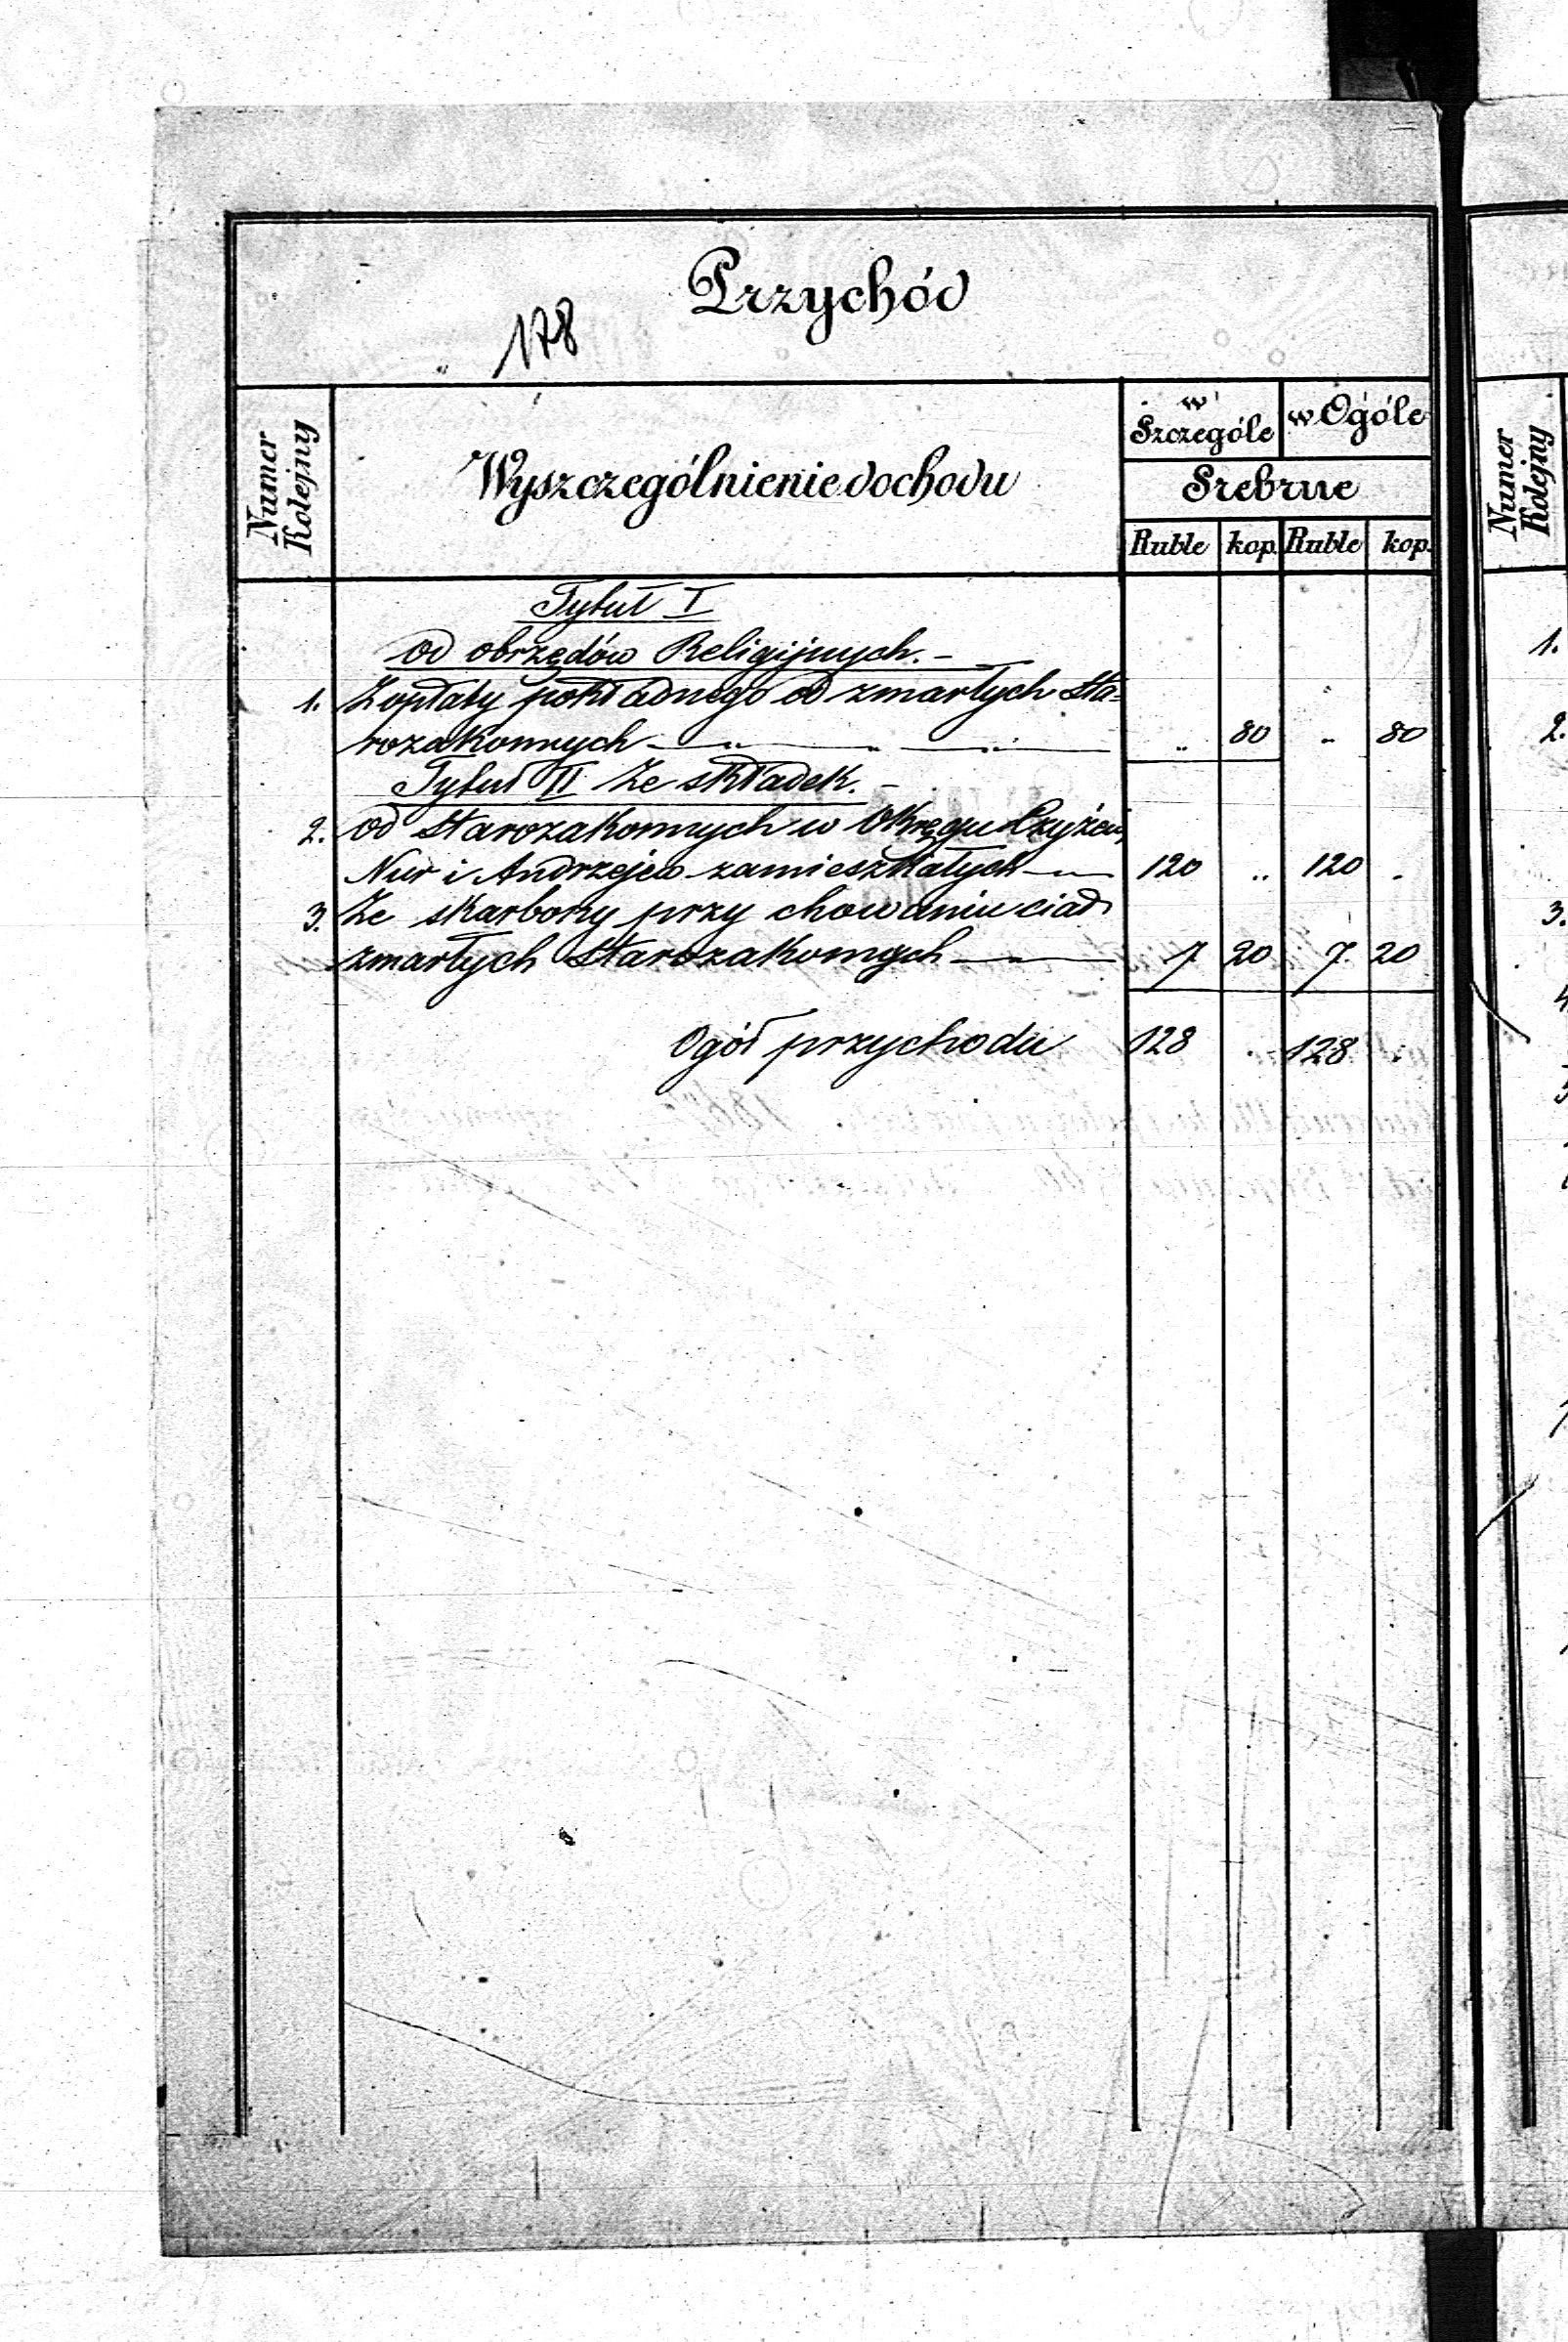 Przychód
178
Numer Kolejny
Wyszczególnienie dochodu
w Szczególe
w Ogóle
Srebrne
Ruble kop. Ruble kop.
Tytuł I
od obrzędów Religijnych. -
1. Z opłaty pokładnego od zmarłych Sta-
rozakonnych " 80 " 80
Tytuł II Ze składek. -
2. od Starozakonnych w Okręgu Czyżew,
Nur i Andrzejewo zamieszkałych 120 " 120 "
3. Ze skarbony przy chowaniu ciał
zmarłych Starozakonnych 7 20 7 20
Ogół przychodu 128 . 128 .
Numer Kolejny
1.
2.
3.